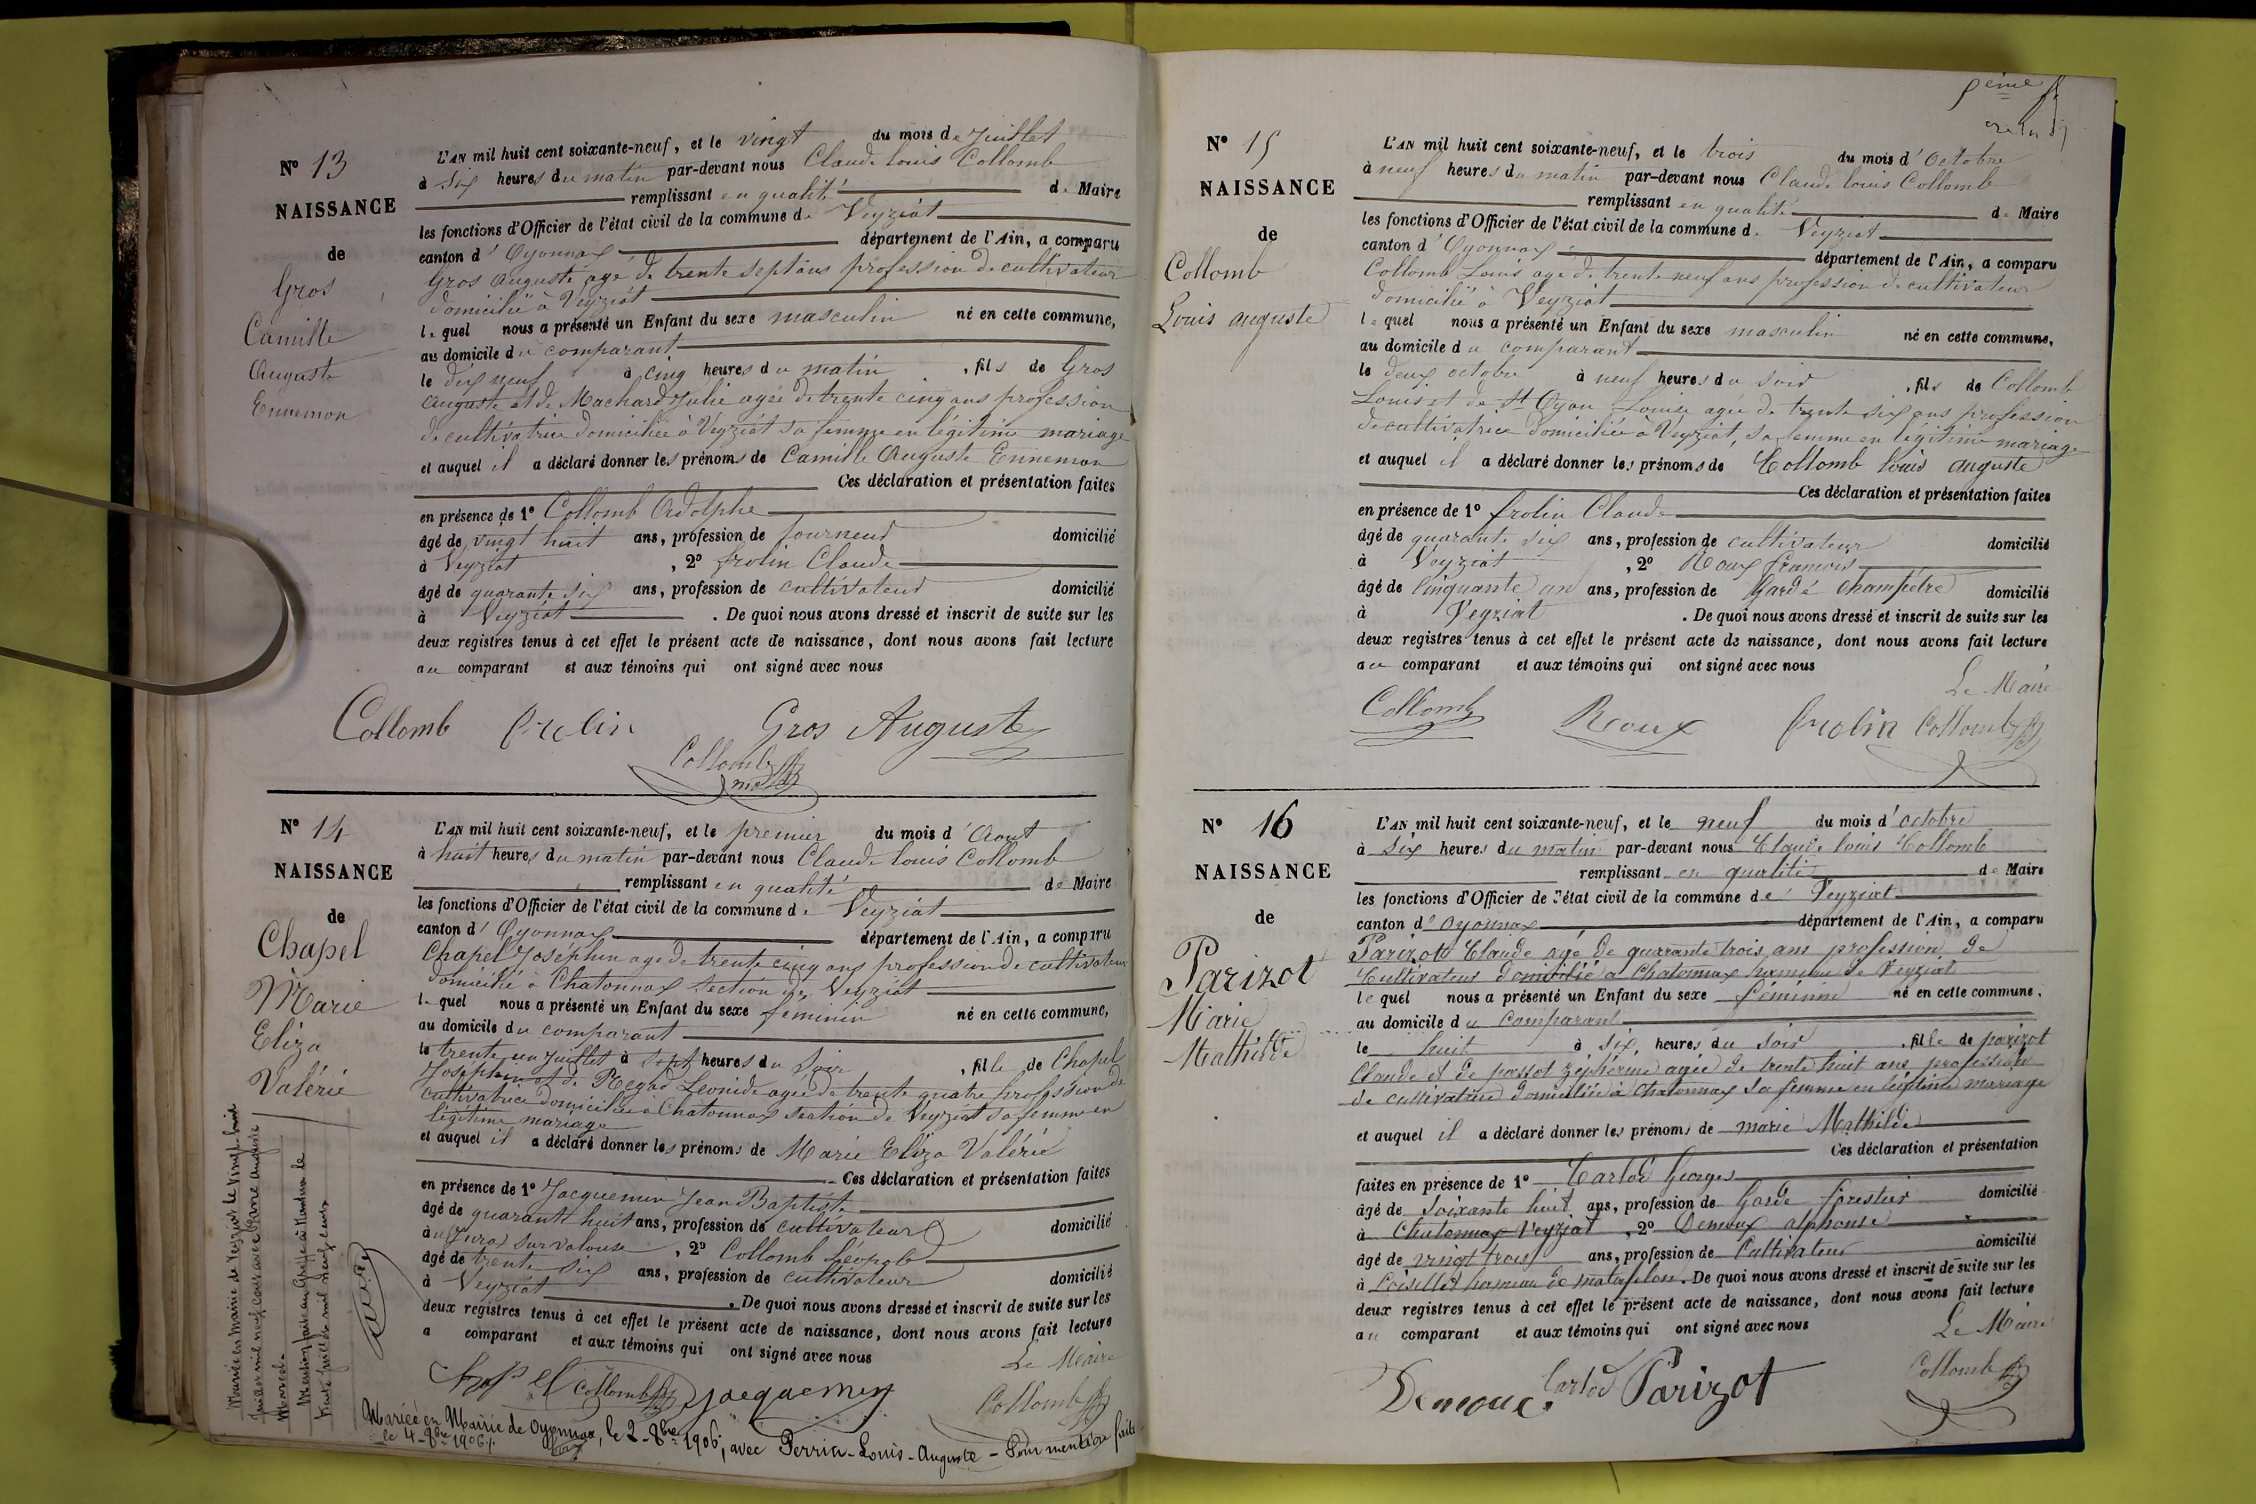 Nº 13
NAISSANCE
de
Gros
Camille
Auguste
Ennemon
L'AN mil huit cent soixante-neuf, et le vingt du mois de Juillet
à six heures du matin par-devant nous Claude louis Collomb
remplissant en qualité de Maire
les fonctions d'Officier de l'état civil de la commune de Veyziat
canton d'Oyonnax département de l'Ain, a comparu
Gros Auguste agé de trente sept ans profession de cultivateur
domicilié à Veyziat
lequel nous a présenté un Enfant du sexe masculin né en cette commune,
au domicile du comparant
le dix neuf à cinq heures du matin, fils de Gros
Auguste et de Machard Julie agée de trente cinq ans profession
de cultivatrice domiciliée à Veyziat sa femme en légitime mariage
et auquel il a déclaré donner les prénoms de Camille Auguste Ennemon
Ces déclaration et présentation faites
en présence de 1º Collomb Adolphe
âgé de vingt huit ans, profession de tourneur domicilié
à Veyziat, 2º frolin Claude
âgé de quarante six ans, profession de cultivateur domicilié
à Veyziat. De quoi nous avons dressé et inscrit de suite sur les
deux registres tenus à cet effet le présent acte de naissance, dont nous avons fait lecture
au comparant et aux témoins qui ont signé avec nous
Collomb frolin Gros Auguste
Collomb
Nº 14
NAISSANCE
de
Chapel
Marie
Eliza
Valérie
L'AN mil huit cent soixante-neuf, et le premier du mois d'Aout
à huit heures du matin par-devant nous Claude louis Collomb
remplissant en qualité de Maire
les fonctions d'Officier de l'état civil de la commune de Veyziat
canton d'Oyonnax département de l'Ain, a comparu
Chapel Joséphin age de trente cinq ans profession de cultivateur
domicilié à Chatonnax section de Veyziat
lequel nous a présenté un Enfant du sexe feminin né en cette commune,
au domicile du comparant
le trente un Juillet à sept heures du soir, fille de Chapel
Josephin et de Regad Leonide agée de trente quatre profession de
cultivatrice domiciliée à Chatonnax section de Veyziat sa femme en
légitime mariage
et auquel il a déclaré donner les prénoms de Marie Eliza Valérie
Ces déclaration et présentation faites
en présence de 1º Jacquemin Jean Baptiste
âgé de quarante huit ans, profession de cultivateur domicilié
à (Jura) sur valouse, 2º Collomb
âgé de trente six ans, profession de cultivateur domicilié
à Veyziat. De quoi nous avons dressé et inscrit de suite sur les
deux registres tenus à cet effet le présent acte de naissance, dont nous avons fait lecture
a comparant et aux témoins qui ont signé avec nous
Le Maire
Collomb Jacquemin Collomb
Mariée en Mairie de Veyziat le vingt huit
Juin mil neuf cent avec Barre Auguste
Marcel.
Mention faite au Greffe à Nantua le
trente juillet mil neuf cent
Mariée en Mairie de Oyonnax, le 2-8bre 1906, avec Perrin-Louis-Auguste - Pour mention faite
le 4-8bre 1906
Nº 15
NAISSANCE
de
Collomb
Louis auguste
L'AN mil huit cent soixante-neuf, et le trois du mois d'Octobre
à neuf heures du matin par-devant nous Claude louis Collomb
remplissant en qualité de Maire
les fonctions d'Officier de l'état civil de la commune de Veyziat
canton d'Oyonnax département de l'Ain, a comparu
Collomb Louis agé de trente neuf ans profession de cultivateur
domicilié à Veyziat
lequel nous a présenté un Enfant du sexe masculin né en cette commune,
au domicile du comparant
le deux octobre à neuf heures du soir, fils de Collomb
Louis et de St Oyan Louise agée de trente six ans profession
de cultivatrice domiciliée à Veyziat, sa femme en légitime mariage
et auquel il a déclaré donner les prénoms de Collomb louis auguste
Ces déclaration et présentation faites
en présence de 1º frolin Claude
âgé de quarante six ans, profession de cultivateur domicilié
à Veyziat, 2º Roux francois
âgé de cinquante un ans, profession de Garde champêtre domicilié
à Veyziat. De quoi nous avons dressé et inscrit de suite sur les
deux registres tenus à cet effet le présent acte de naissance, dont nous avons fait lecture
au comparant et aux témoins qui ont signé avec nous
Le Maire
Collomb Roux frolin Collomb
Nº 16
NAISSANCE
de
Parizot
Marie
Mathilde
L'AN mil huit cent soixante-neuf, et le neuf du mois d'octobre
à six heures du matin par-devant nous Claude louis Collomb
remplissant en qualité de Maire
les fonctions d'Officier de l'état civil de la commune de Veyziat
canton d'oyonnax département de l'Ain, a comparu
Parizot Claude agé de quarante trois ans profession de
Cultivateur domicilié a Chatonnax hameau de Veyziat
lequel nous a présenté un Enfant du sexe féminin né en cette commune,
au domicile du comparant
le huit à six heures du soir, fille de parizot
Claude et de passot zéphérine agée de trente huit ans profession
de cultivatrice domiciliée à Chatonnax sa femme en légitime mariage
et auquel il a déclaré donner les prénoms de marie Mathilde
Ces déclaration et présentation
faites en présence de 1º Carlod Georges
âgé de soixante huit ans, profession de Garde forestier domicilié
à Chatonnax Veyziat, 2º Demoux alphonse
âgé de vingt trois ans, profession de Cultivateur domicilié
à Coiselles hameau de matafelon. De quoi nous avons dressé et inscrit de suite sur les
deux registres tenus à cet effet le présent acte de naissance, dont nous avons fait lecture
au comparant et aux témoins qui ont signé avec nous
Le Maire
Demoux Carlod Parizot Collomb